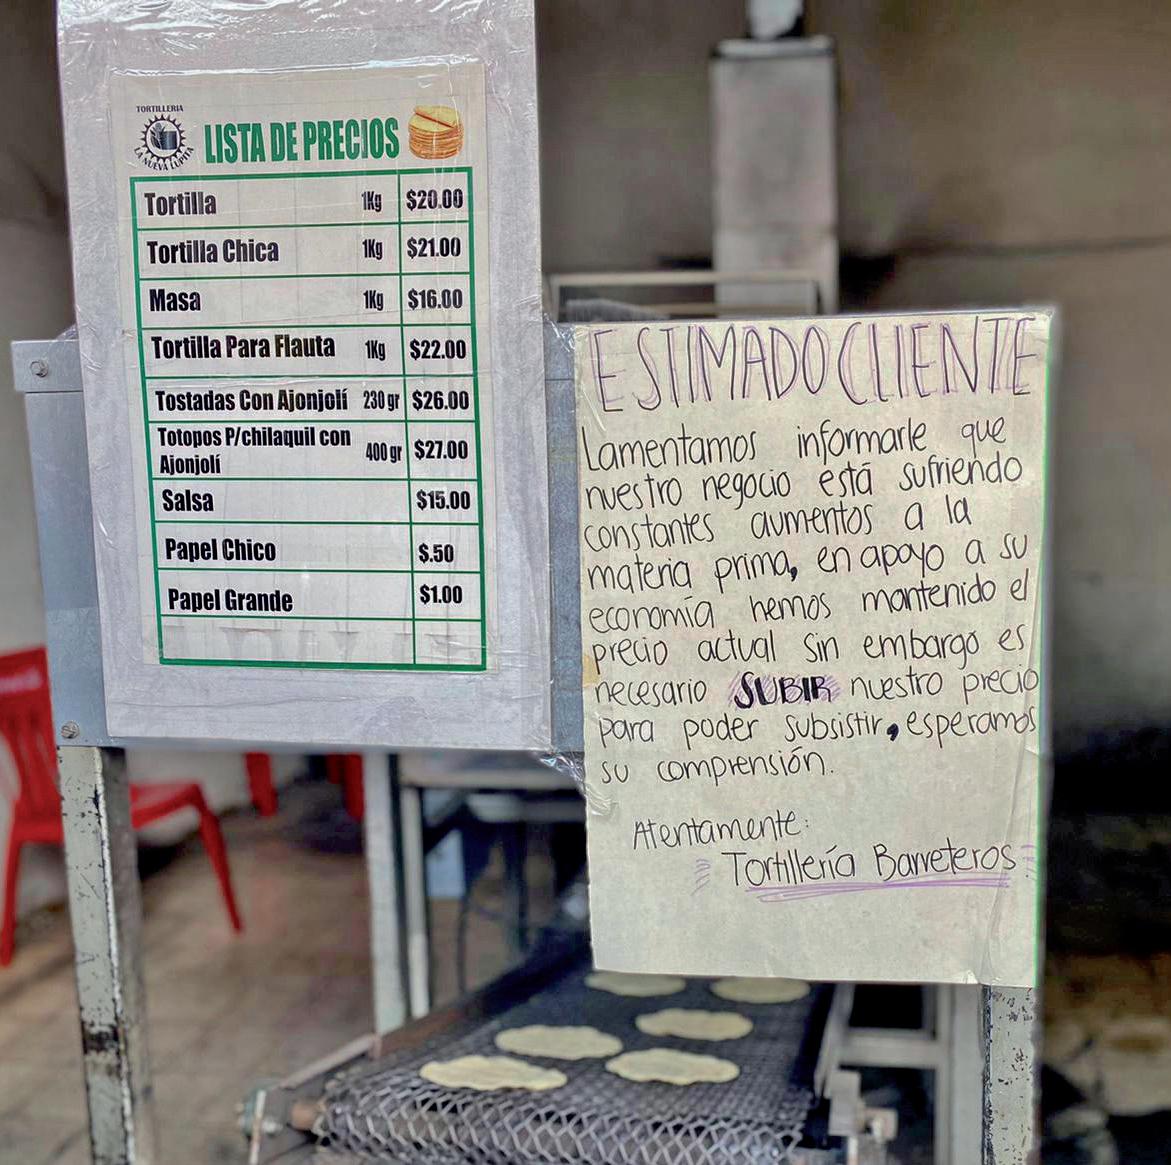 TORTILLERIA
LA NUEVA LUPITA
LISTA DE PRECIOS
Tortilla 1Kg $20.00
Tortilla Chica 1Kg $21.00
Masa 1Kg $16.00
Tortilla Para Flauta 1Kg $22.00
Tostadas Con Ajonjolí 230 gr $26.00
Totopos P/chilaquil con
Ajonjolí 400 gr $27.00
Salsa $15.00
Papel Chico $.50
Papel Grande $1.00
ESTIMADO CLIENTE
Lamentamos informarle que
nuestro negocio está sufriendo
constantes aumentos a la
materia prima, en apoyo a su
economía hemos mantenido el
precio actual sin embargo es
necesario SUBIR nuestro precio
para poder subsistir, esperamos
su comprensión.
Atentamente:
Tortillería Barreteros